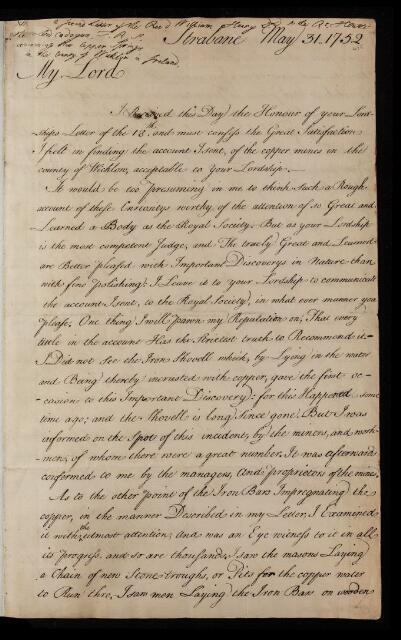 A second Letter of the Revd William Henry D.D. to the Rt. Honor
Lord Cadogan F.R.S.
of the Copper Springs
in the County of Wicklow in Ireland
Strabane May 31. 1752
My Lord
I Received this Day the Honour of your Lord-
ships Letter of the 18th. and must confess the Great Satisfaction
I felt in finding the account I sent, of the copper mines in the
county of Wicklow, acceptable to your Lordship.—
It would be too presuming in me to think such a Rough
account of these Curiositys worthy of the attention of so Great and
Learned a Body as the Royal Society: But as your Lordship
is the most competent Judge, and The truely Great and Learned
are Better pleased with Important Discoverys in Nature than
with fine polishing: I Leave it to your Lordship to communicate
the account I sent, to the Royal Society, in what ever manner you
please, One thing I will pawn my Reputation on, That every
tittle in the account Has the strictest truth to Recommend it—
I Did not See the Iron Shovell which, by Lying in the water
and Being thereby incrusted with copper, gave the first oc-
casion to this Important Discovery: for this Happened some
time ago; and the Shovell is long Since gone. But I was
informed on the Spot of this incident, by the miners, and work-
men, of whom there were a great number. It was afterwards
confirmed to me by the managers, and proprietors of the mines.
As to the other point of the Iron Bars Impregnating the
copper, in the manner Described in my Letter, I Examined
it with the utmost attention, and was an Eye witness to it in all
its progress, and so are thousands, I saw the masons Laying
a Chain of new Stone-troughs, or Pits for the copper water
to Run thro, I saw men Laying the Iron Bars on wooden